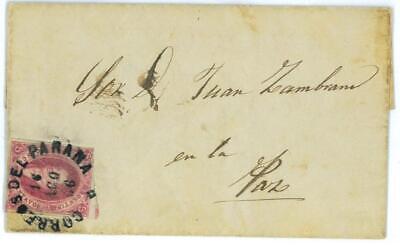 Sor Dn Juan Zambrano
en la
Paz
CORREOS DEL PARANA